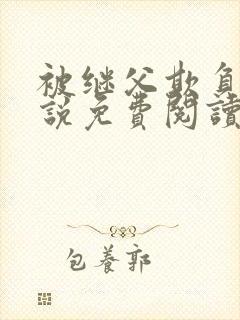 被继父欺負
說免費閱讀
包養郭